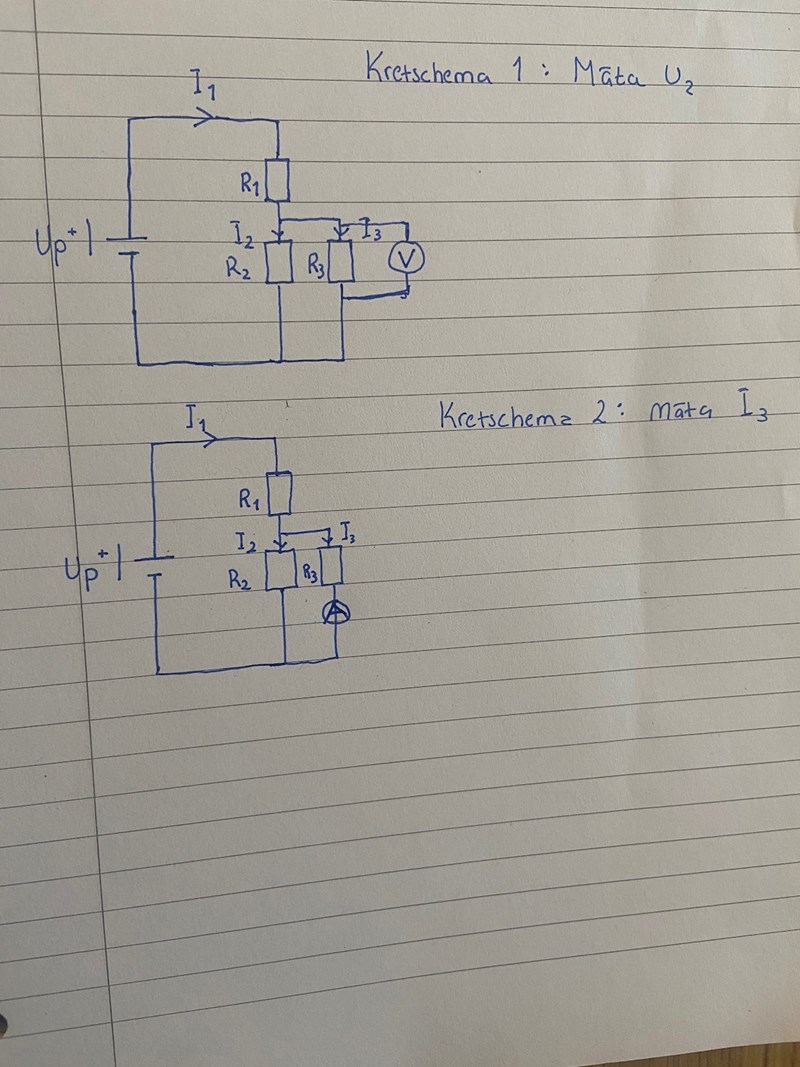 Kretschema 1: Mäta U₂
I₁
R₁
I₂ I₃
Up + R₂ R₃ V
Kretschema 2: Mäta I₃
I₁
R₁
I₂ I₃
Up + R₂ R₃
A